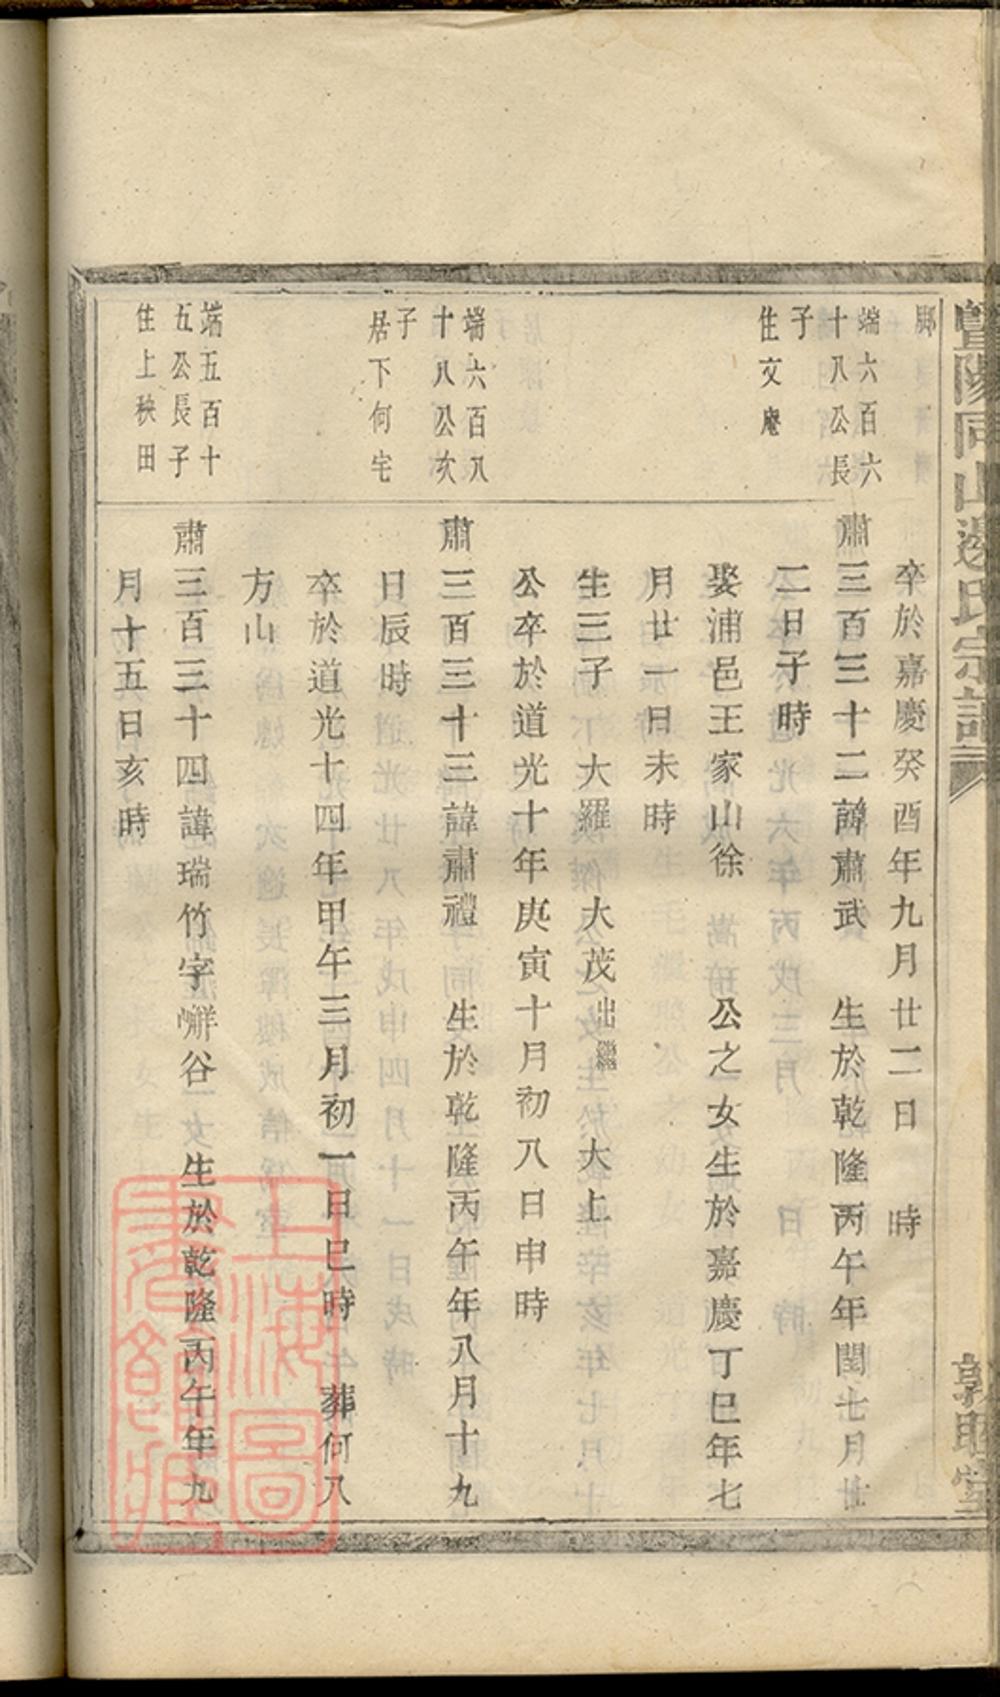 暨陽同山邊氏宗譜
敦睦堂
脚
卒於嘉慶癸酉年九月廿二日 時
端六百六
十八公長
子
住文庵
肅三百三十二諱肅武 生於乾隆丙午年閏七月廿
二日子時
娶浦邑王家山徐 公之女生於嘉慶丁巳年七
月廿一日未時
生三子 大羅 大茂出繼 大上
公卒於道光十年庚寅十月初八日申時
端六百八
十八公次
子
居下何宅
肅三百三十三諱肅禮 生於乾隆丙午年八月十九
日辰時
卒於道光十四年甲午三月初一日巳時 葬何八
方山
端五百十
五公長子
住上秧田
肅三百三十四諱瑞竹字嶰谷 生於乾隆丙午年九
月十五日亥時
上海圖
書館藏